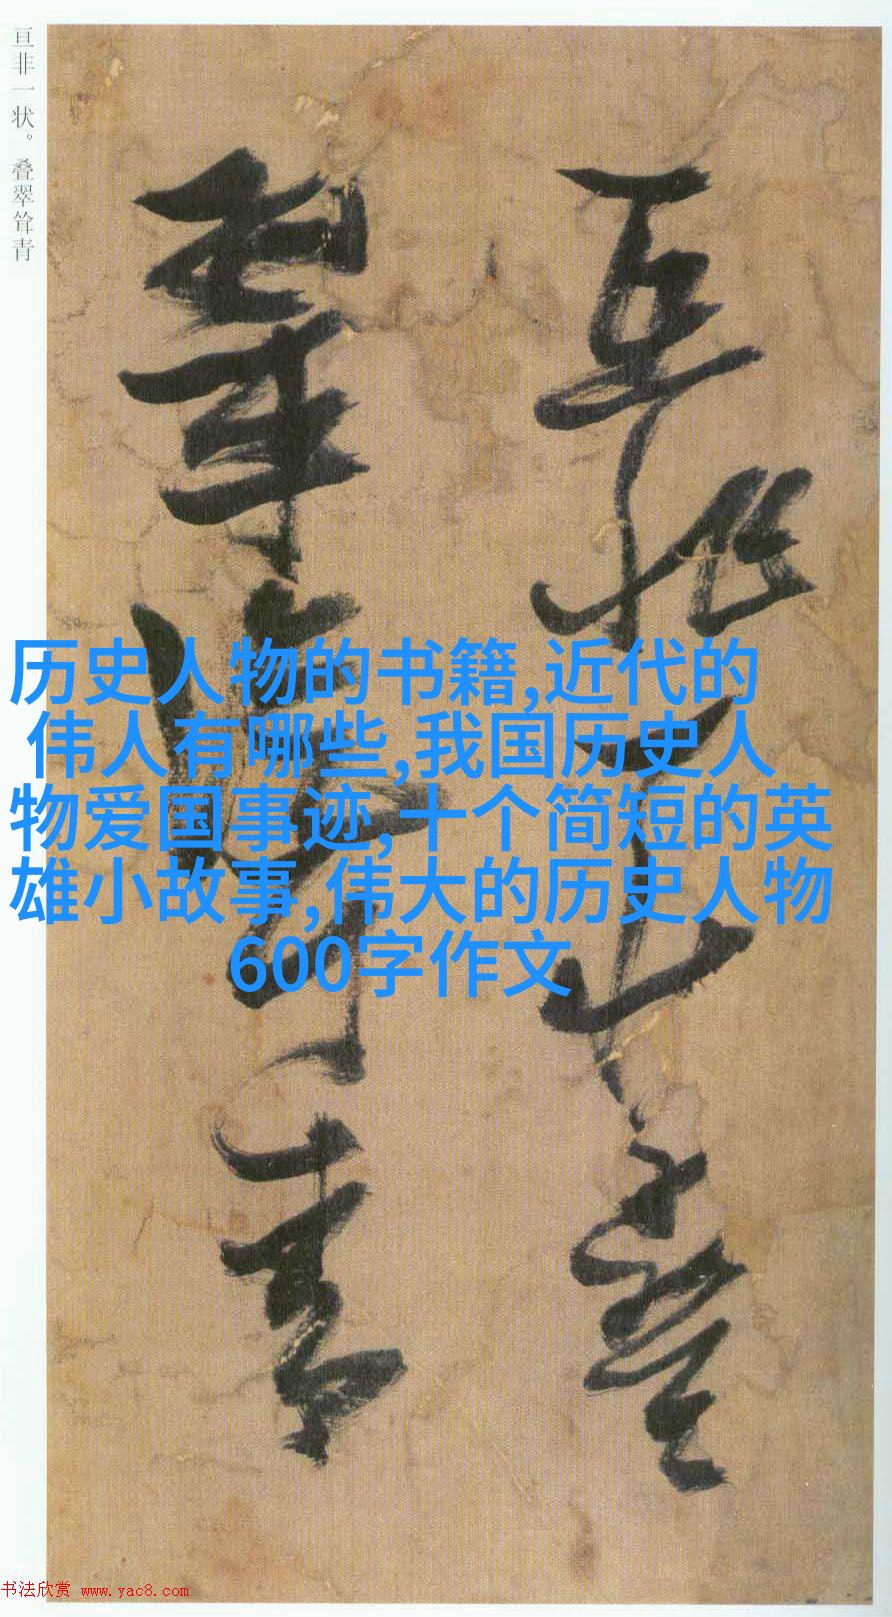 亘非一状。叠翠耸青
亘非一状叠
翠耸青
历史人物的书籍,近代的
伟人有哪些,我国历史人
物爱国事迹,十个简短的英
雄小故事,伟大的历史人物
600字作文
书法欣赏 www.yac8.com